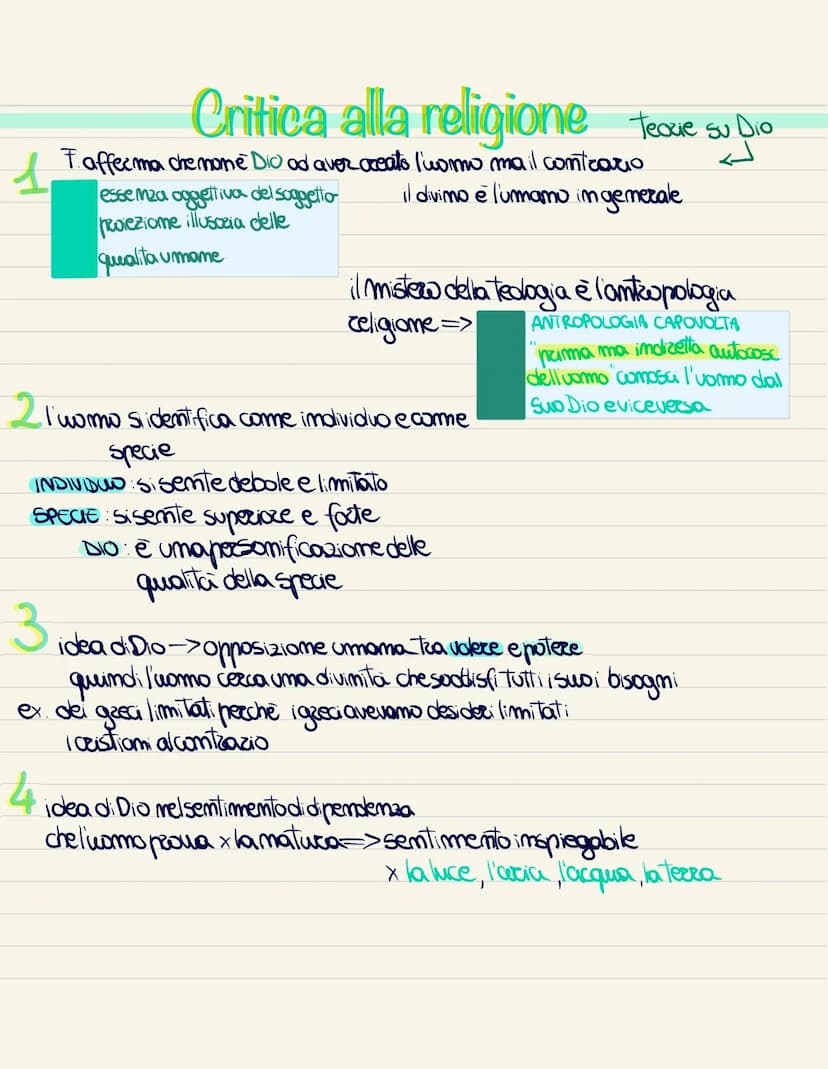 Critica alla religione
Teorie su Dio
1 F. afferma che non è Dio ad aver creato l'uomo ma il contrario
essenza oggettiva del soggetto
proiezione illusoria delle
qualita umane
il divino è l'umano in generale
il mistero della teologia è l'antropologia
religione =>
ANTROPOLOGIA CAPOVOLTA
"prima ma indiretta autocosc
dell'uomo" conosci l'uomo dal
suo Dio e viceversa
2 l'uomo si identifica come individuo e come
specie
INDIVIDUO : si sente debole e limitato
SPECIE : si sente superiore e forte
DIO : è una personificazione delle
qualità della specie
3 idea di Dio -> opposizione umana tra volere e potere
quindi l'uomo cerca una divinità che soddisfi tutti i suoi bisogni
ex. dei greci limitati perchè i greci avevano desideri limitati
i cristiani al contrario
4 idea di Dio nel sentimento di dipendenza
che l'uomo prova x la natura => sentimento inspiegabile
x la luce, l'aria, l'acqua, la terra